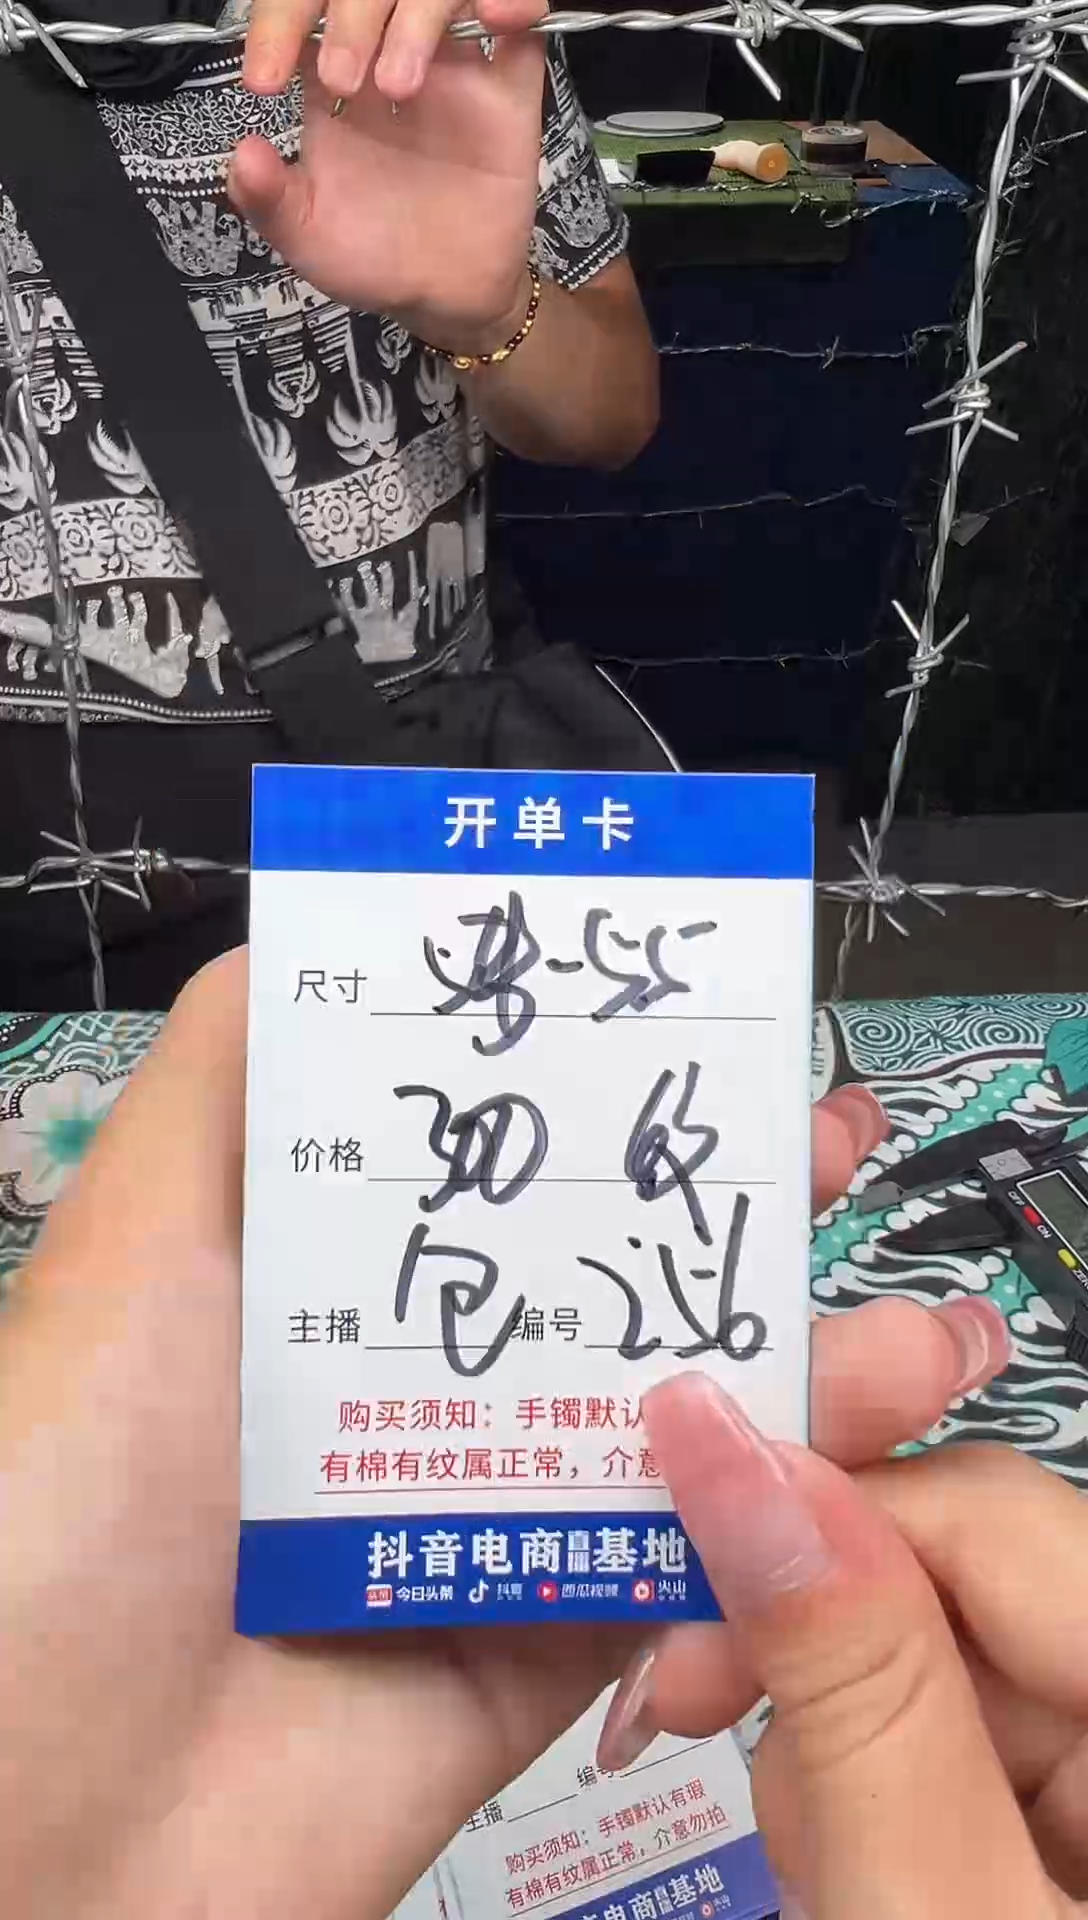 开单卡
尺寸 -55
价格 300 收
主播 包 编号 256
购买须知：手镯默认
有棉有纹属正常，介意
抖音电商直播基地
头条 今日头条 抖音 西瓜视频 火山
OFF ON
主播 编号
购买须知：手镯默认有瑕
有棉有纹属正常，介意勿拍
抖音电商直播基地
火山